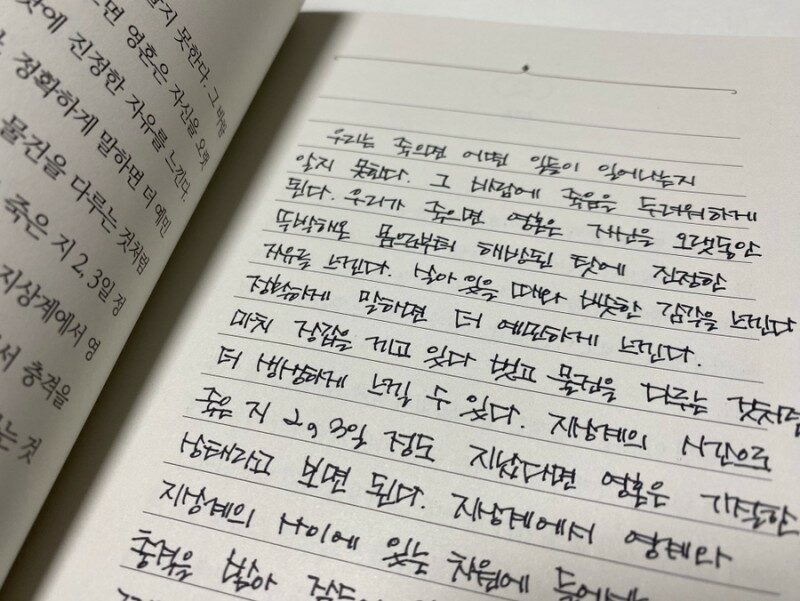 알지 못한다. 그 바람
으면 영혼은 자신을 오랫
탓에 진정한 자유를 느낀다.
정확하게 말하면 더 예민
물건을 다루는 것처럼
죽은 지 2, 3일 정
지상계에서 영
서 충격을
는 것
우리는 죽으면 어떤 일들이 일어나는지
알지 못한다. 그 바람에 죽음을 두려워하게
된다. 우리가 죽으면 영혼은 자신을 오랫동안
뚝박해온 몸으로부터 해방된 탓에 진정한
자유를 느낀다. 살아 있을 때와 비슷한 감각을 느낀다
정확하게 말하면 더 예민하게 느낀다.
마치 장갑을 끼고 있다 벗고 물건을 다루는 것처럼
더 생생하게 느낄 수 있다. 지상계의 시간으로
죽은 지 2, 3일 정도 지났다면 영혼은 기절한
상태라고 보면 된다. 지상계에서 영계와
지상계의 사이에 있는 차원에 들어
충격을 받아 잠들